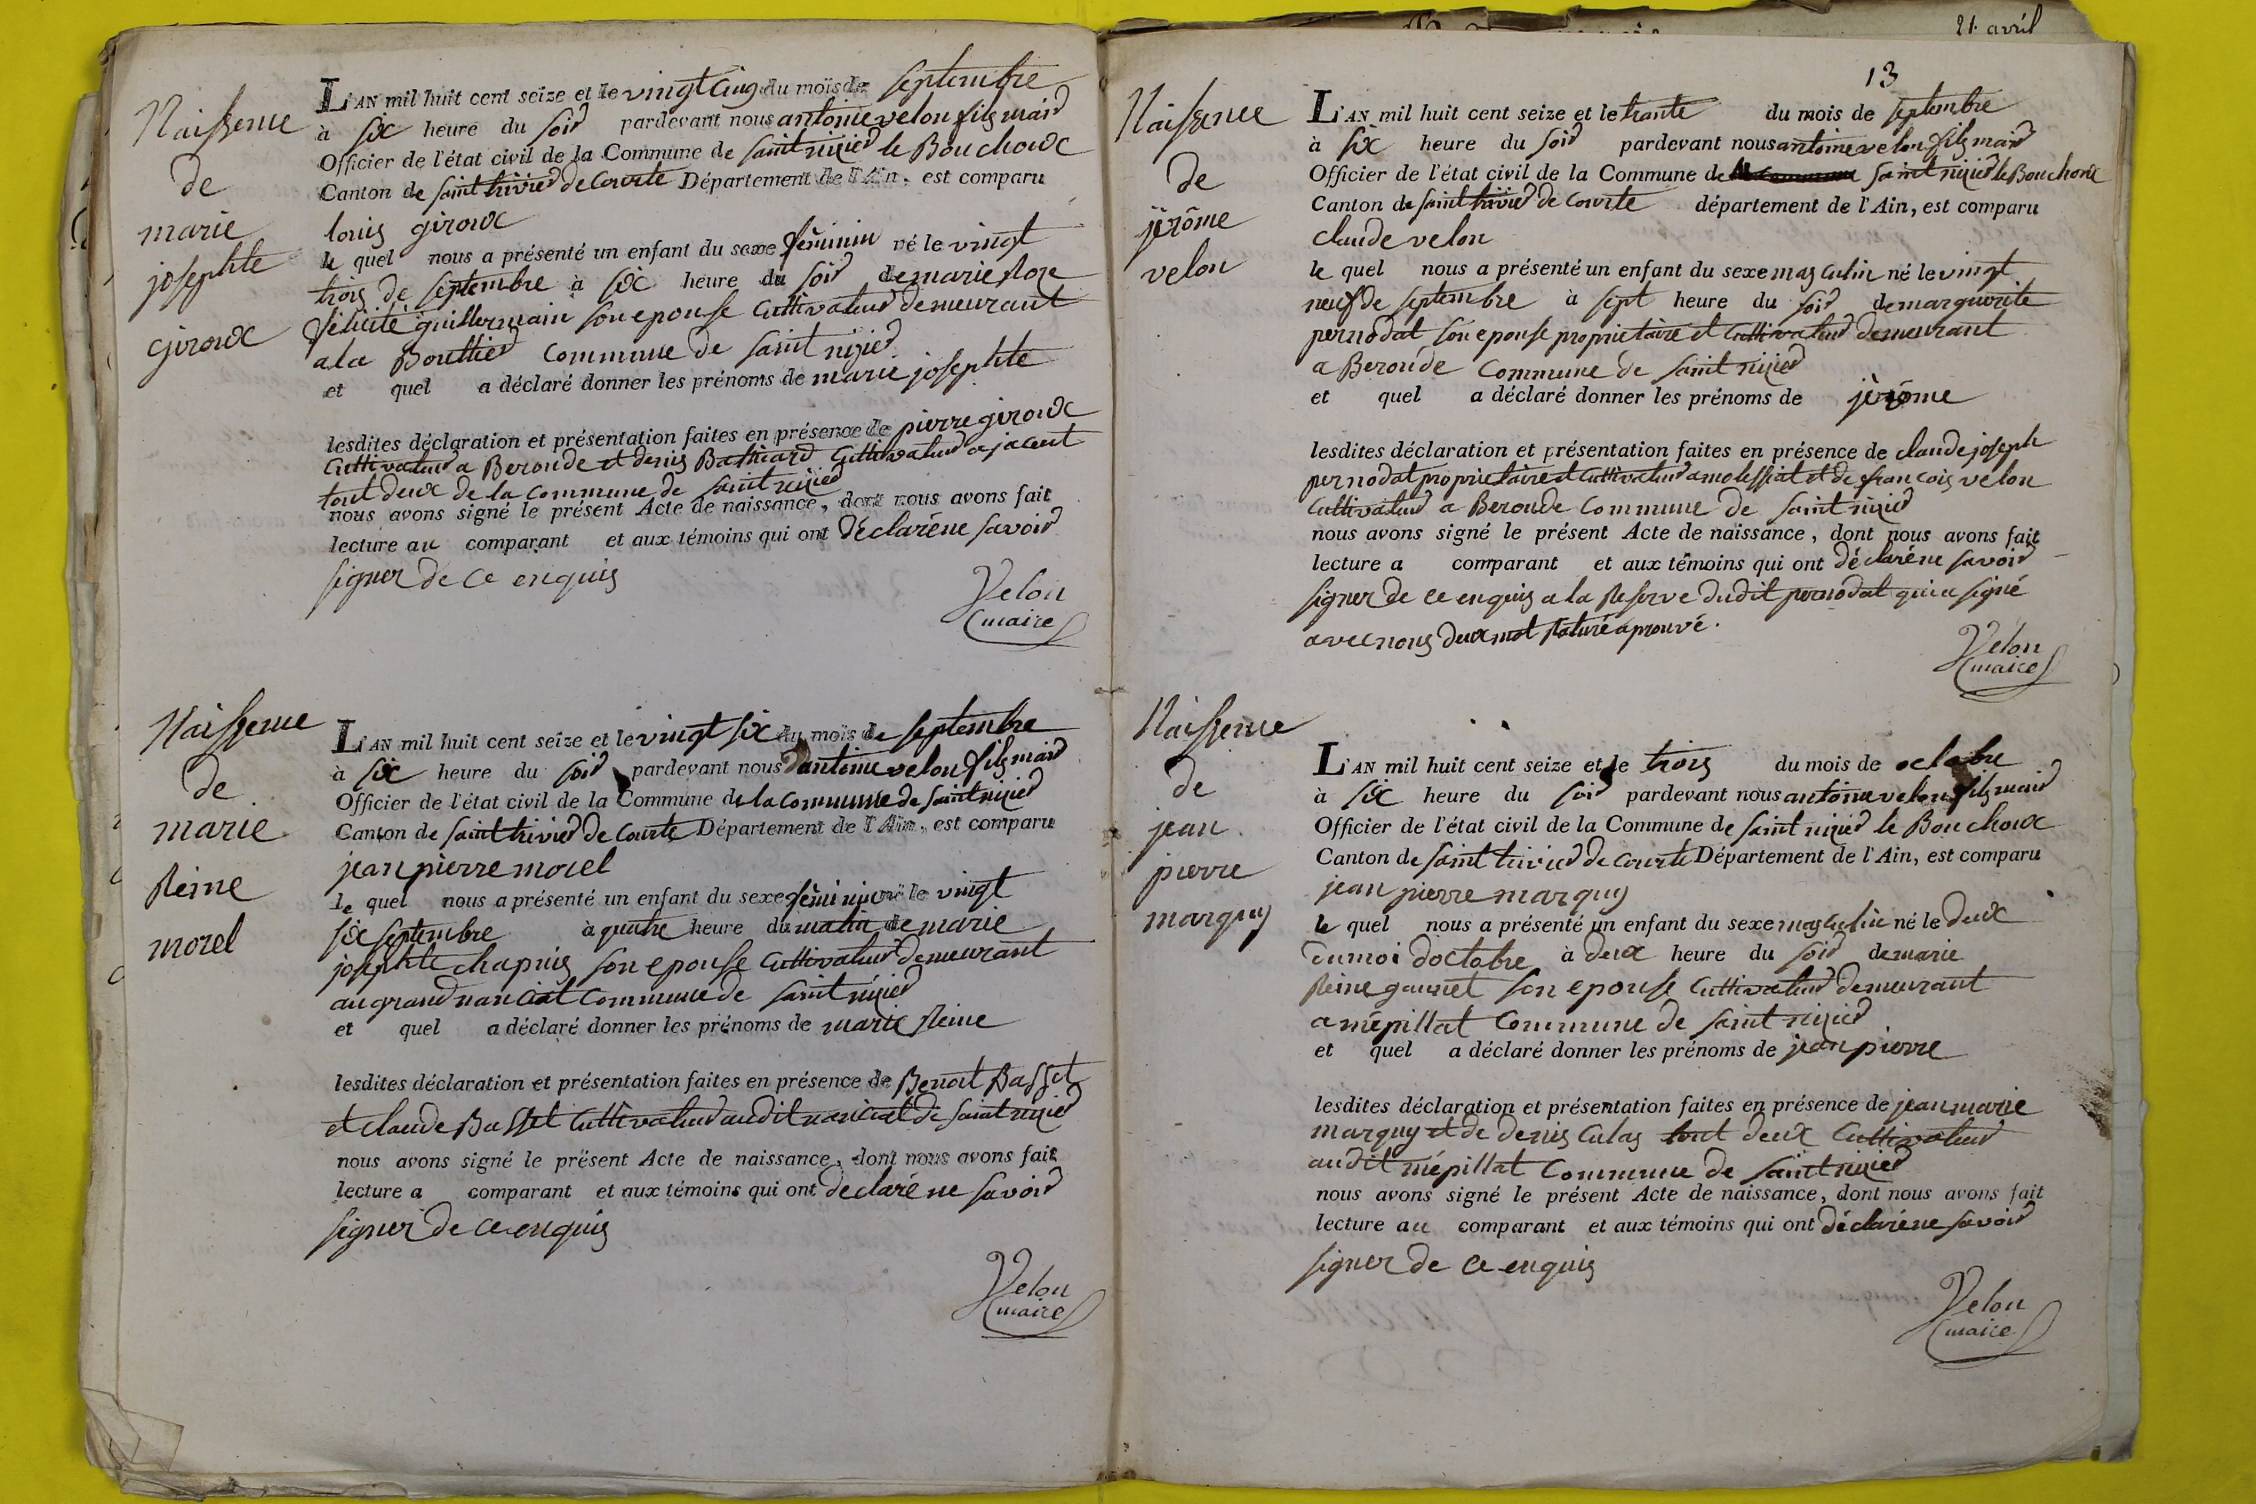 Naissence
de
marie
josephte
giroux
L'AN mil huit cent seize et le vingt cinq du mois de septembre
à six heure du soir pardevant nous antoine velon fils maire
Officier de l'état civil de la Commune de saint nizier le Bouchoux
Canton de saint trivier de Courte Département de l'Ain, est comparu
louis giroux
le quel nous a présenté un enfant du sexe féminin né le vingt
trois de septembre à six heure du soir de marie
félicité guillermain son epouse Cultivateur demeurant
a la Commune de saint nizier
et quel a déclaré donner les prénoms de marie josephte
lesdites déclaration et présentation faites en présence de pierre giroux
Cultivateur a Beronde et denis Cultivateur
tout deux de la Commune de saint nizier
nous avons signé le présent Acte de naissance, dont nous avons fait
lecture au comparant et aux témoins qui ont déclaré ne savoir
signer de ce enquis
Velon
maire
Naissence
de
marie
Reine
morel
L'AN mil huit cent seize et le vingt six du mois de septembre
à six heure du soir pardevant nous antoine velon fils maire
Officier de l'état civil de la Commune de la Commune de saint nizier
Canton de saint trivier de Courte Département de l'Ain, est comparu
jean pierre morel
le quel nous a présenté un enfant du sexe féminin né le vingt
six septembre à quatre heure du matin de marie
josephte chapuis son epouse Cultivateur demeurant
au grand nanciat Commune de saint nizier
et quel a déclaré donner les prénoms de marie Reine
lesdites déclaration et présentation faites en présence de Benoit Basset
et claude Basset Cultivateur audit nanciat de saint nizier
nous avons signé le présent Acte de naissance, dont nous avons fait
lecture a comparant et aux témoins qui ont déclaré ne savoir
signer de ce enquis
Velon
maire
21 avril
13
Naissence
de
jérôme
velon
L'AN mil huit cent seize et le trante du mois de septembre
à six heure du soir pardevant nous antoine velon fils maire
Officier de l'état civil de la Commune de saint nizier le Bouchoux
Canton de saint trivier de Courte département de l'Ain, est comparu
claude velon
le quel nous a présenté un enfant du sexe masculin né le vingt
neuf de septembre à sept heure du soir de marguerite
pernodat son epouse proprietaire et Cultivateur demeurant
a Beronde Commune de saint nizier
et quel a déclaré donner les prénoms de jérôme
lesdites déclaration et présentation faites en présence de claude joseph
pernodat proprietaire et Cultivateur a molessiat et de francois velon
Cultivateur a Beronde Commune de saint nizier
nous avons signé le présent Acte de naissance, dont nous avons fait
lecture a comparant et aux témoins qui ont déclaré ne savoir
signer de ce enquis a la Reserve dudit pernodat qui a signé
avec nous deux mot Raturé aprouvé.
Velon
maire
Naissence
de
jean
pierre
marquy
L'AN mil huit cent seize et le trois du mois de octobre
à six heure du soir pardevant nous antoine velon fils maire
Officier de l'état civil de la Commune de saint nizier le Bouchoux
Canton de saint trivier de Courte Département de l'Ain, est comparu
jean pierre marquy
le quel nous a présenté un enfant du sexe masculin né le deux
du moi doctobre à deux heure du soir de marie
Reine son epouse Cultivateur demeurant
a mépillat Commune de saint nizier
et quel a déclaré donner les prénoms de jean pierre
lesdites déclaration et présentation faites en présence de jean marie
marquy et de denis Culas tout deux Cultivateur
audit mépillat Commune de saint nizier
nous avons signé le présent Acte de naissance, dont nous avons fait
lecture au comparant et aux témoins qui ont déclaré ne savoir
signer de ce enquis
Velon
maire